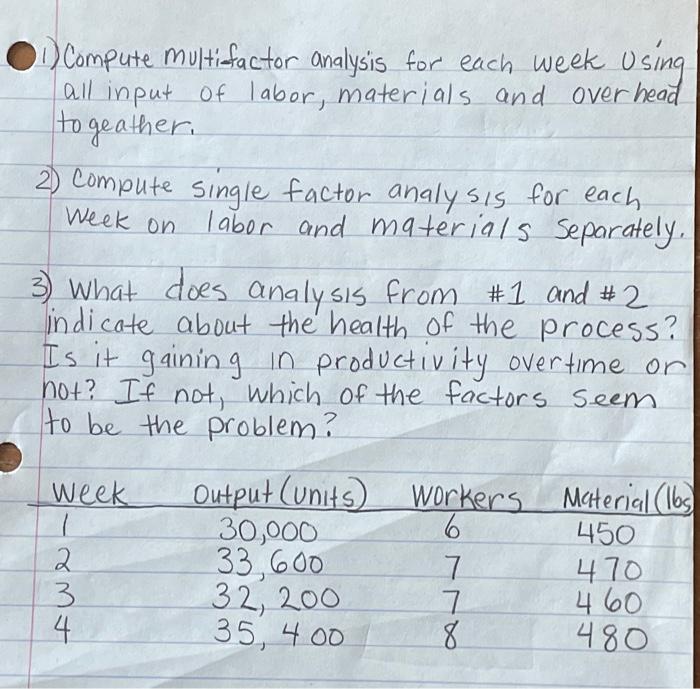 1) Compute multifactor analysis for each week Using
all input of labor, materials and overhead
togeather.
2) Compute single factor analysis for each
Week on labor and materials separately.
3) What does analysis from #1 and #2
indicate about the health of the process?
Is it gaining in productivity overtime or
not? If not, which of the factors seem
to be the problem?
Week Output (units) Workers Material (lbs)
1 30,000 6 450
2 33,600 7 470
3 32,200 7 460
4 35,400 8 480